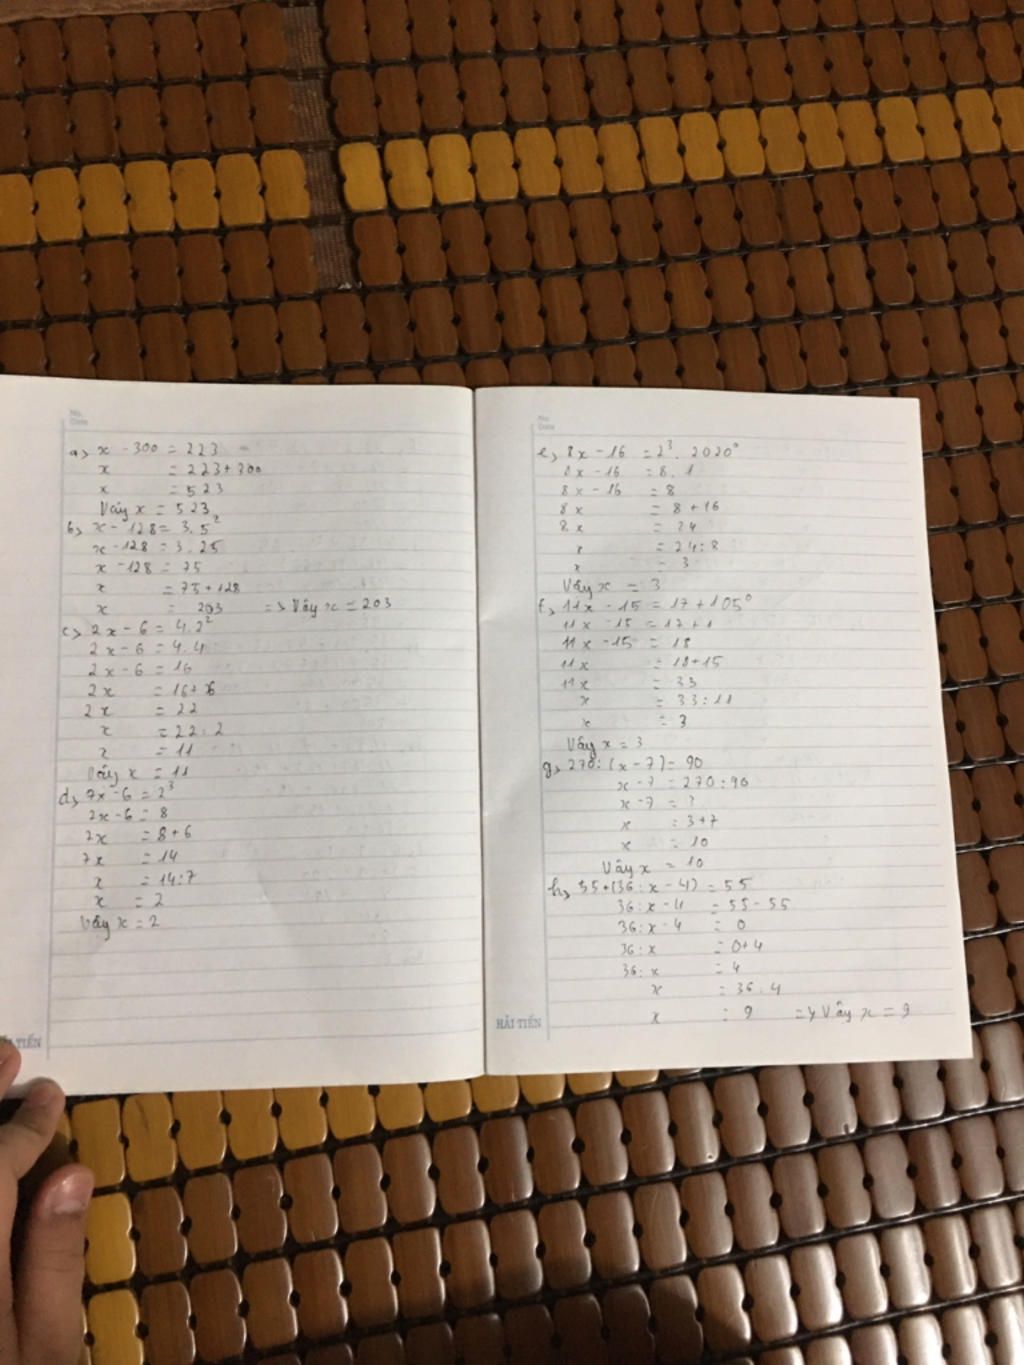 No.
Date
a, x - 300 = 223
x = 223 + 300
x = 523
Vậy x = 523
b, x - 128 = 3.5²
x - 128 = 3.25
x - 128 = 75
x = 75 + 128
x = 203 => Vậy x = 203
c, 2x - 6 = 4.2²
2x - 6 = 4.4
2x - 6 = 16
2x = 16 + 6
2x = 22
x = 22 : 2
x = 11
Vậy x = 11
d, 7x - 6 = 2³
7x - 6 = 8
7x = 8 + 6
7x = 14
x = 14 : 7
x = 2
Vậy x = 2
TIẾN
No.
Date
e, 8x - 16 = 2³ . 2020⁰
8x - 16 = 8 . 1
8x - 16 = 8
8x = 8 + 16
8x = 24
x = 24 : 8
x = 3
Vậy x = 3
f, 11x - 15 = 17 + 105⁰
11x - 15 = 17 + 1
11x - 15 = 18
11x = 18 + 15
11x = 33
x = 33 : 11
x = 3
Vậy x = 3
g, 270 : (x - 7) = 90
x - 7 = 270 : 90
x - 7 = 3
x = 3 + 7
x = 10
Vậy x = 10
h, 55 + (36 : x - 4) = 55
36 : x - 4 = 55 - 55
36 : x - 4 = 0
36 : x = 0 + 4
36 : x = 4
x = 36 : 4
x = 9 => Vậy x = 9
HẢI TIẾN